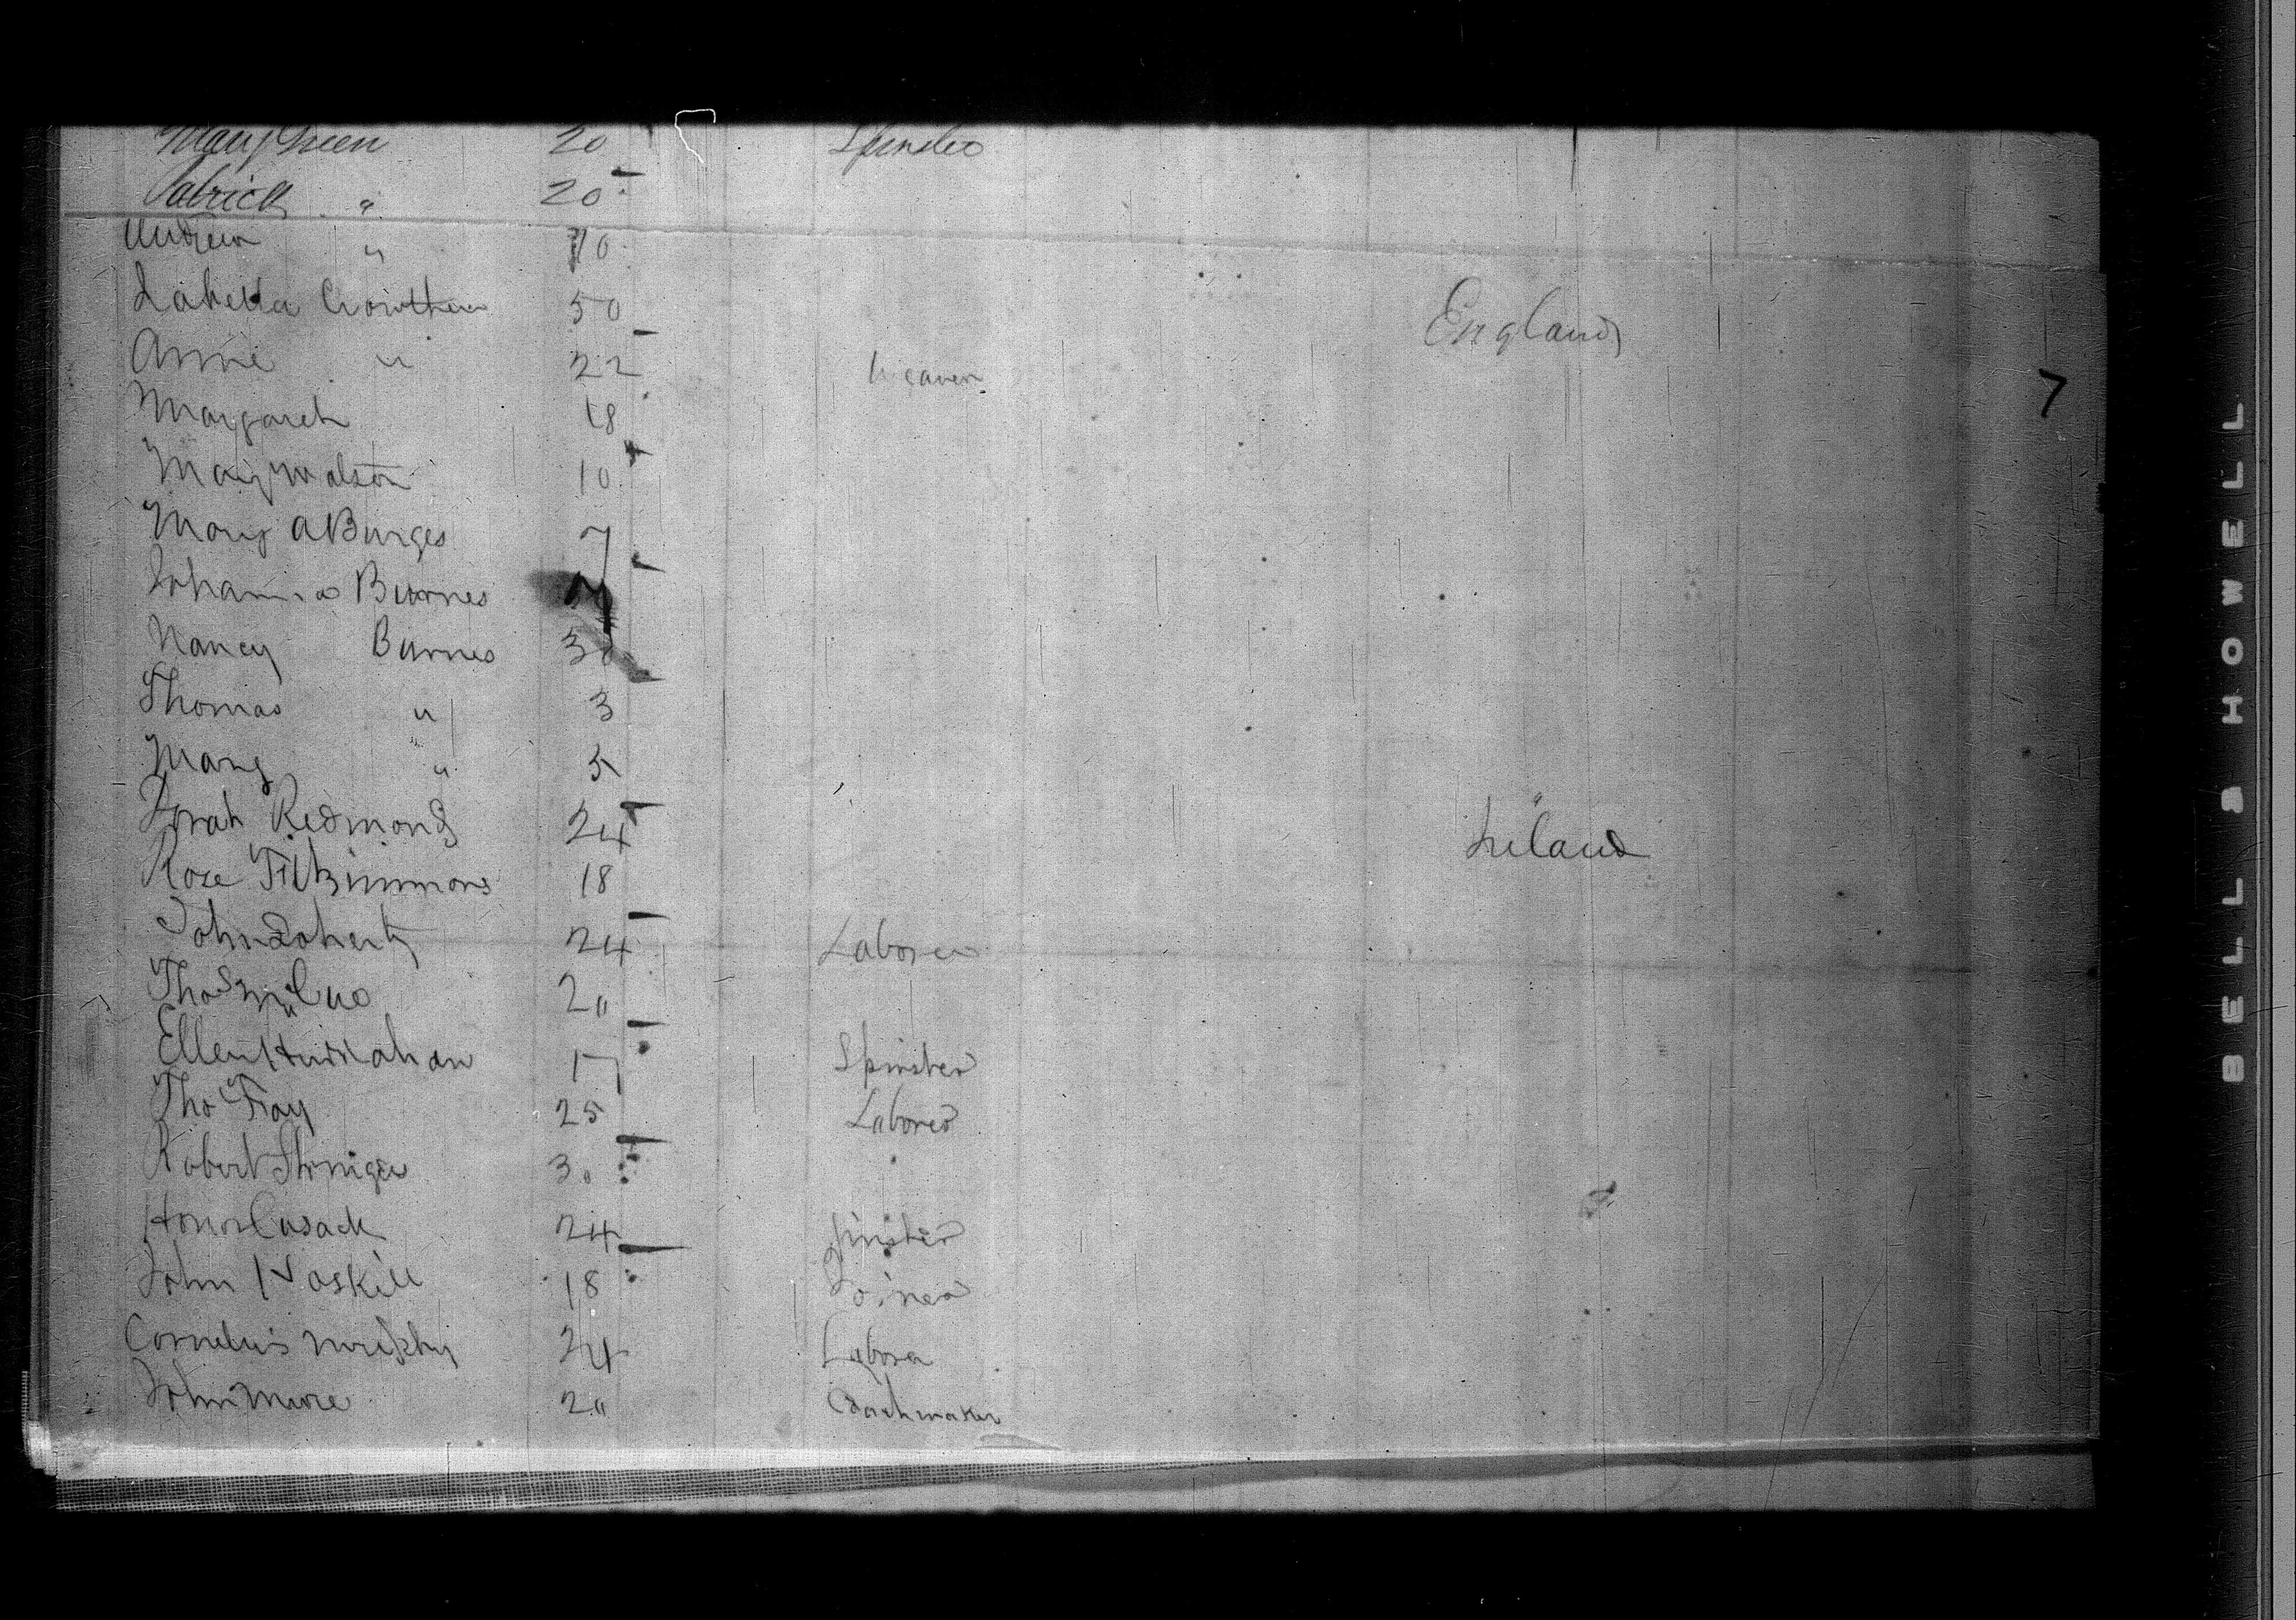 Mary Green 20 Spinster
Patrick " 20
Andrew " 10
Isabella Crowther 50 England
Anne " 22 Weaver
Margaret 18
Mary Watson 10
7
Mary A Burges 7
Johanna Burnes
Nancy Burnes 30
Thomas " 3
Mary " 5
Sarah Redmond 24 Ireland
Rose Fitzsimmons 18
John Doherty 24 Laborer
Thos 20
Ellen 17 Spinster
Tho Fay 25 Laborer
Robert 30
Honor Cusack 24 Spinster
John 18 Joiner
Cornelius Murphy 24 Labora
John More 20 Coachmaker
BELL & HOWELL